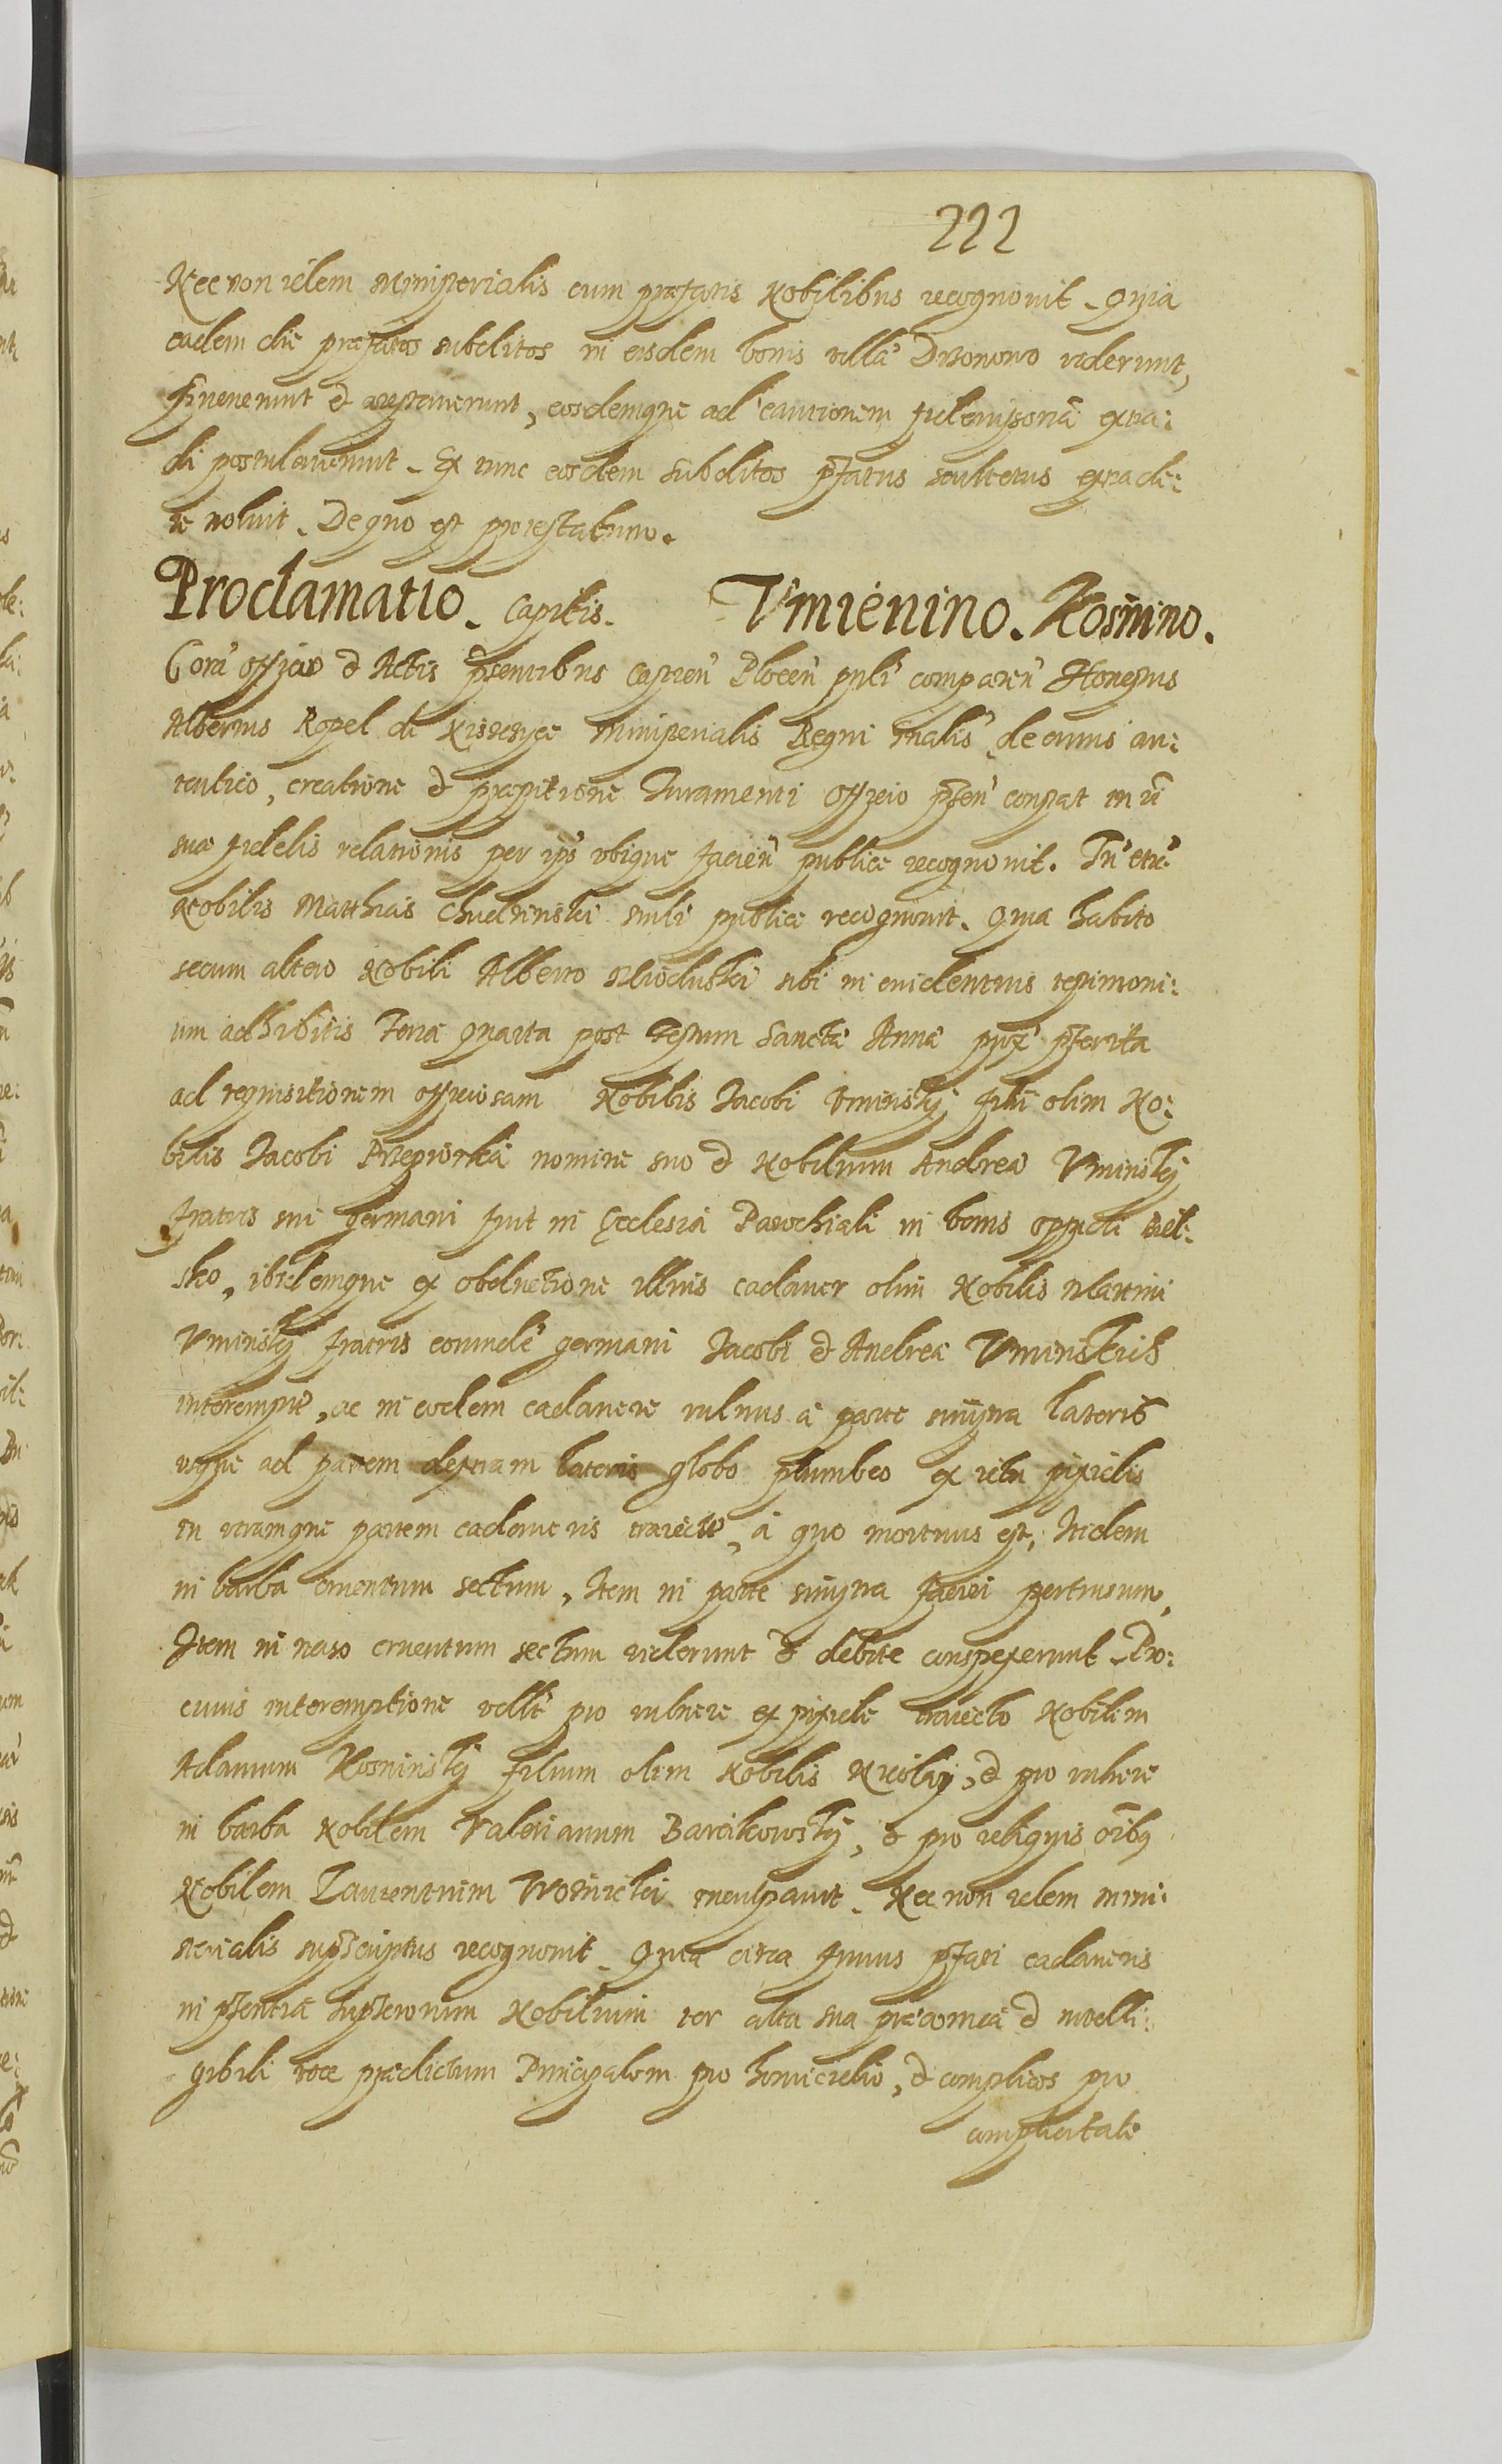 222
Nec non idem Ministerialis cum præfatis Nobilibus recognovit. Quia
eadem die præfatos subditos in eisdem bonis villa Drzonowo viderunt,
invenerunt et arestaverunt, eosdemque ad cautionem fideiussoriã extra:
di postulaverunt. Ex tunc eosdem subditos pfatus scultetus extrade:
re noluit. De quo est protestatum.
Proclamatio. Capitis. Vmienino. Kosinino.
Corã officio et Actis pñtibus Castren Plocen psnli comparen Honestus
Albertus Ropel de Ministerialis Regni gnalis, de cuius au:
tentico, creatione et præstitione Iuramenti officio psen constat in vi
suæ fidelis relationis per ips ubique facien publice recognovit. In etu
Nobilis Matthias Chudzinski suuli publice recognovit. Quia habito
secum altero Nobili Alberto Mioduski sibi in evidentius testimoni:
um adhibitis feria quarta post festum Sanctæ Annæ prox pterita
ad requisitionem officiosam Nobilis Iacobi Vminskÿ filii olim No:
bilis Iacobi Przepiorka nomine suo et Nobilium Andreæ Vminskÿ
fratris sui germani fuit in Ecclesia Parochiali in bonis oppidi Biel:
sko, ibidemque ex obductione illius cadaver olim Nobilis Martini
Vminskÿ fratris eorunde germani Iacobi et Andreæ Vminskich
interempti, ac in eodem cadavere vulnus a parte sinistra lateris
usque ad partem dextram lateris globo plumbeo ex ictu pixidis
in utramque partem cadaveris traiectũ, à quo mortuus est, Itidem
in barba cruentum sectum, Item in parte sinistra faciei pertusum,
Item in naso cruentum sectum viderunt et debite conspexerunt. Pro:
cuius interemptione velle pro vulnere ex pixide traiecto Nobilem
Adamum Kosninskÿ filium olim Nobilis Nicolai, et pro vulnere
in barba Nobilem Valerianum Barcikowskÿ, et pro reliquis oib9
Nobilem Laurentium Woznicki inculpavit. Nec non idem mini:
sterialis suprscriptus recognovit. Quia circa funus pfati cadaveris
in psentia supsctorum Nobilium ter alta sua præconica et intelli:
gibili voce prædictum Principalem pro homicidio, et complices pro
complicitate